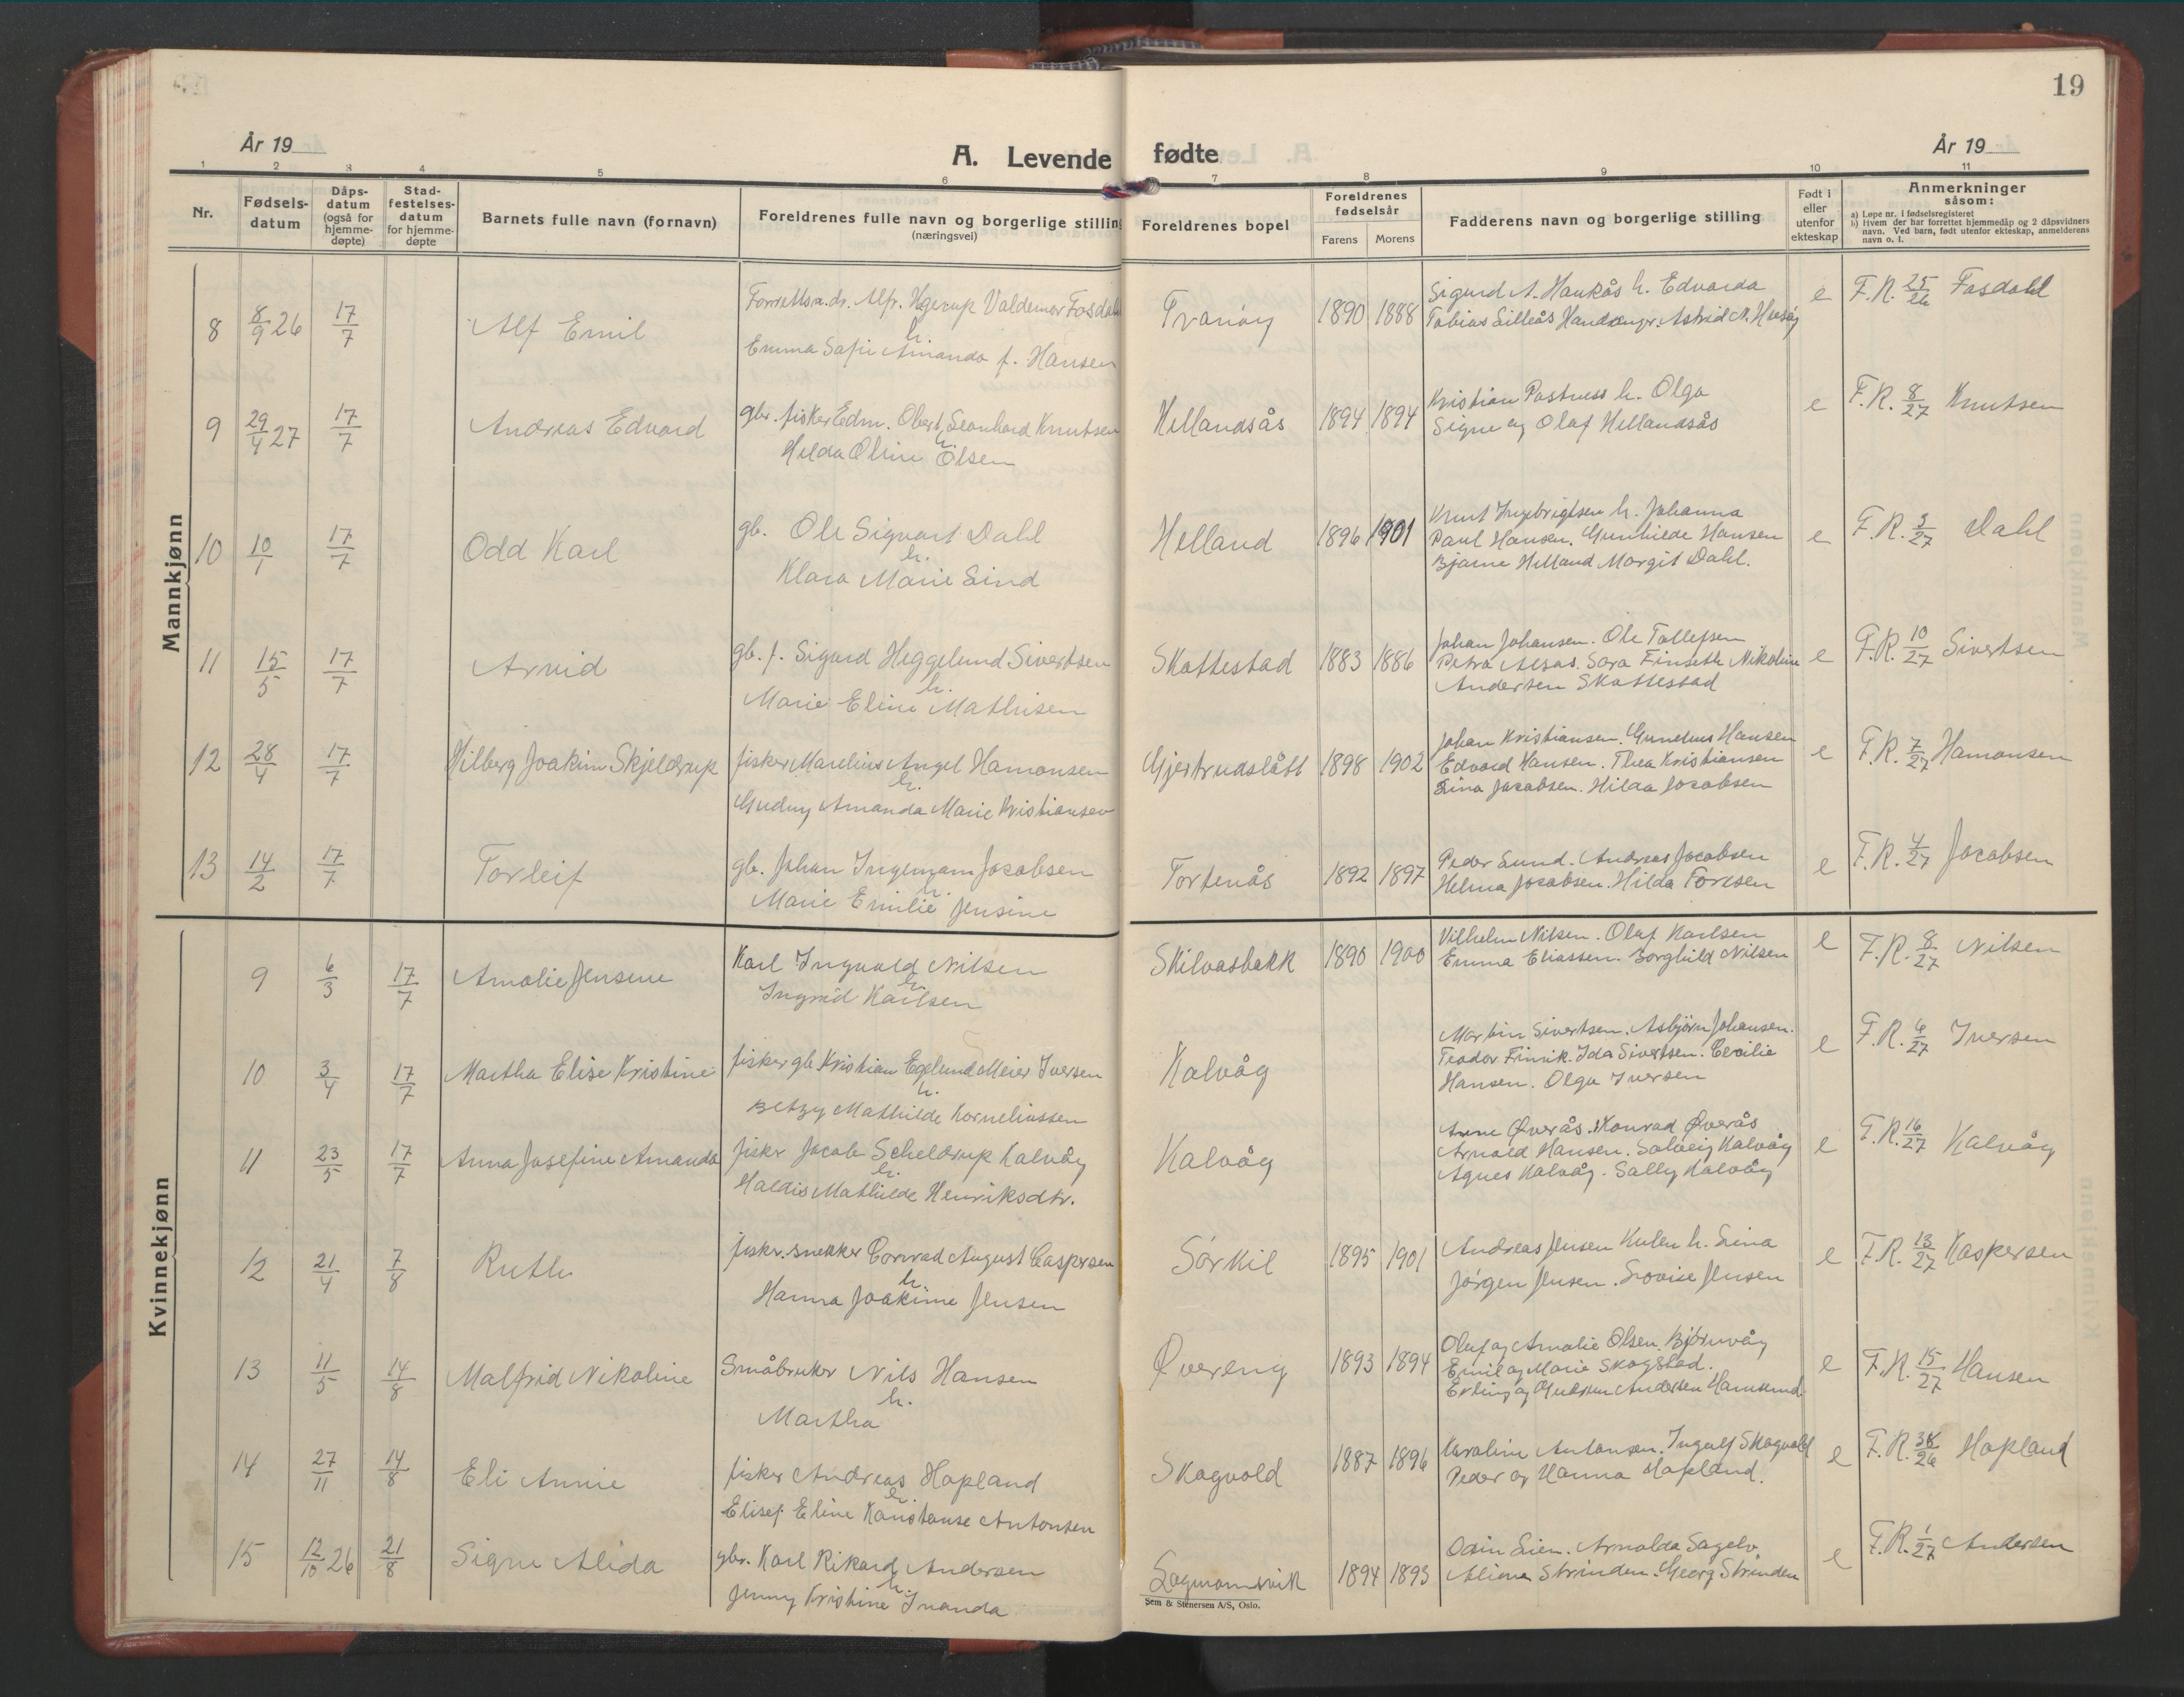 19
År 19
A. Levende fødte
År 19
1 2 3 4 5 6 7 8 9 10 11
Nr.
Fødsels-
datum
Dåps-
datum
(også for
hjemme-
døpte)
Stad-
festelses-
datum
for hjemme-
døpte
Barnets fulle navn (fornavn)
Foreldrenes fulle navn og borgerlige stilling
(næringsvei)
Foreldrenes bopel
Foreldrenes
fødselsår
Farens Morens
Fadderens navn og borgerlige stilling
Født i
eller
utenfor
ekteskap
Anmerkninger
såsom:
a) Løpe nr. i fødselsregisteret
b) Hvem der har forrettet hjemmedåp og 2 dåpsvidners
navn. Ved barn, født utenfor ekteskap, anmelderens
navn o. l.
Mannkjønn
8 8/9 26 17/7 Alf Emil
Alfr. Hgerup Valdemar Fosdahl
h.
Emma Sofie Amanda f. Hansen
Tranöy 1890 1888
Sigurd A. Haukås h. Edvarda
Tobias Silleås Astrid N.
e F.R. 25/26 Fosdahl
9 29/4 27 17/7 Andreas Edvard
gbr. fisker Edm. Obert Leonhard Knutsen
h.
Hilda Oline Olsen
Hellandsås 1894 1894
Kristian h. Olga
Signe og Olaf Hellandsås
e F.R. 8/27 Knutsen
10 10/1 17/7 Odd Karl
gb. Ole Sigvart Dahl
h.
Klara Marie Lind
Helland 1896 1901
Knut Ingebrigtsen h. Johanna
Paul Hansen. Gunhilde Hansen
Bjarne Helland Margit Dahl.
e F.R. 3/27 Dahl
11 15/5 17/7 Arvid
gb. f. Sigurd Heggelund Sivertsen
h.
Marie Eline Mathisen
Skottestad 1883 1886
Johan Johansen. Ole Tollefsen
Petra Sara Finseth Nikoline
Andersen Skottestad
e F.R. 10/27 Sivertsen
12 28/4 17/7 Hilberg Joakim Skjeldrup
fisker Marelius Angel Hamonsen
h.
Gudny Amanda Marie Kristiansen
Gjertrudslått 1898 1902
Johan Kristiansen. Hansen
Edvard Hansen. Thea Kristiansen
Lina Jacobsen. Hilda Jacobsen
e F.R. 7/27 Hamonsen
13 14/2 17/7 Torleif
gb. Johan Ingemann Jacobsen
h.
Marie Emilie Jensine
Tortenås 1892 1897
Peder Lund. Andreas Jacobsen
Helma Jacobsen. Hilda Toresen
e F.R. 4/27 Jacobsen
Kvinnekjønn
9 6/3 17/7 Amalie Jensine
Karl Ingvald Nilsen
h.
Ingrid Karlsen
Skilvasbakk 1890 1900
Vilhelm Nilsen. Olaf Karlsen
Emma Eliassen. Borghild Nilsen
e F.R. 8/27 Nilsen
10 3/4 17/7 Martha Elise Kristine
fisker gb Kristian Egelund Meier Iversen
h.
Betzy Mathilde Korneliussen
Kalvåg
Martin Sivertsen. Asbjörn Johansen.
Teodor Finvik. Ida Sivertsen. Cecilie
Hansen. Olga Iversen
e F.R. 6/27 Iversen
11 23/5 17/7 Anna Josefine Amanda
fisker Jacob Scheldrup Kalvåg
h.
Haldis Mathilde Henriksdtr.
Kalvåg
Arne Øverås. Konrad Øverås
Arnold Hansen. Solveig Kalvåg
Agnes Kalvåg. Sally Kalvåg
e F.R. 16/27 Kalvåg
12 21/4 7/8 Ruth
fisker. snekker Conrad August Caspersen
h.
Hanna Joakime Jensen
Sörkil 1895 1901
Andreas Jensen Kulen h. Lina
Jörgen Jensen. Lovise Jensen
e F.R. 13/27 Kaspersen
13 11/5 14/8 Malfrid Nikoline
Småbruker Nils Hansen
h.
Martha
Øvereng 1893 1894
Olaf og Amalie Olsen Björnvåg
Emil og Marie Skogstad.
Erling og Andersen Hamsund.
e F.R. 15/27 Hansen
14 27/11 14/8 Eli Annie
fisker Andreas Hopland
h.
Elisef Eline Konstanse Antonsen
Skogvold 1887 1896
Karoline Antonsen. Ingulf Skogvold
Peder og Hanna Hopland.
e F.R. 38/26 Hopland
15 12/10 26 21/8 Signe Alida
gbr. Karl Rikard Andersen
h.
Jenny Kristine Inanda
Lagmannsvik 1894 1893
Odin Lien. Arnolda Sagelv
Strinden. Georg Strinden
e F.R. 1/27 Andersen
Sem & Stenersen A/S, Oslo.